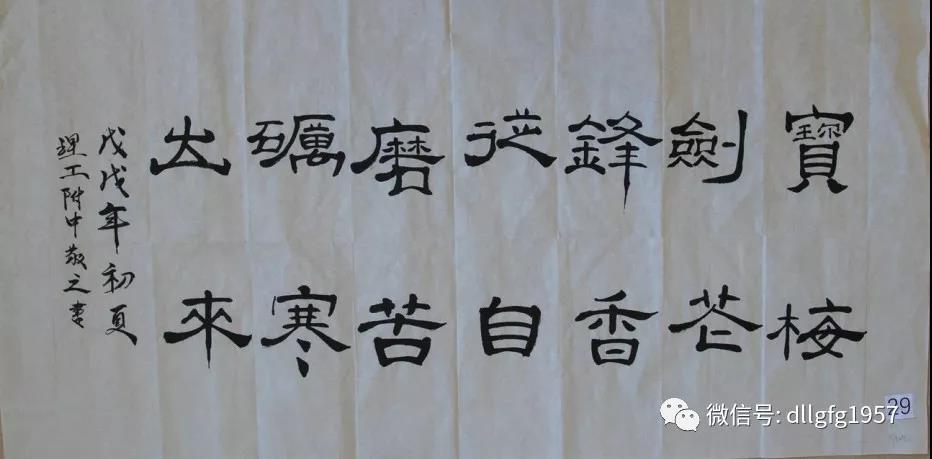 寶劍鋒從磨礪出
梅花香自苦寒來
戊戌年初夏
理工附中敬之書
29
微信号: dllgfg1957